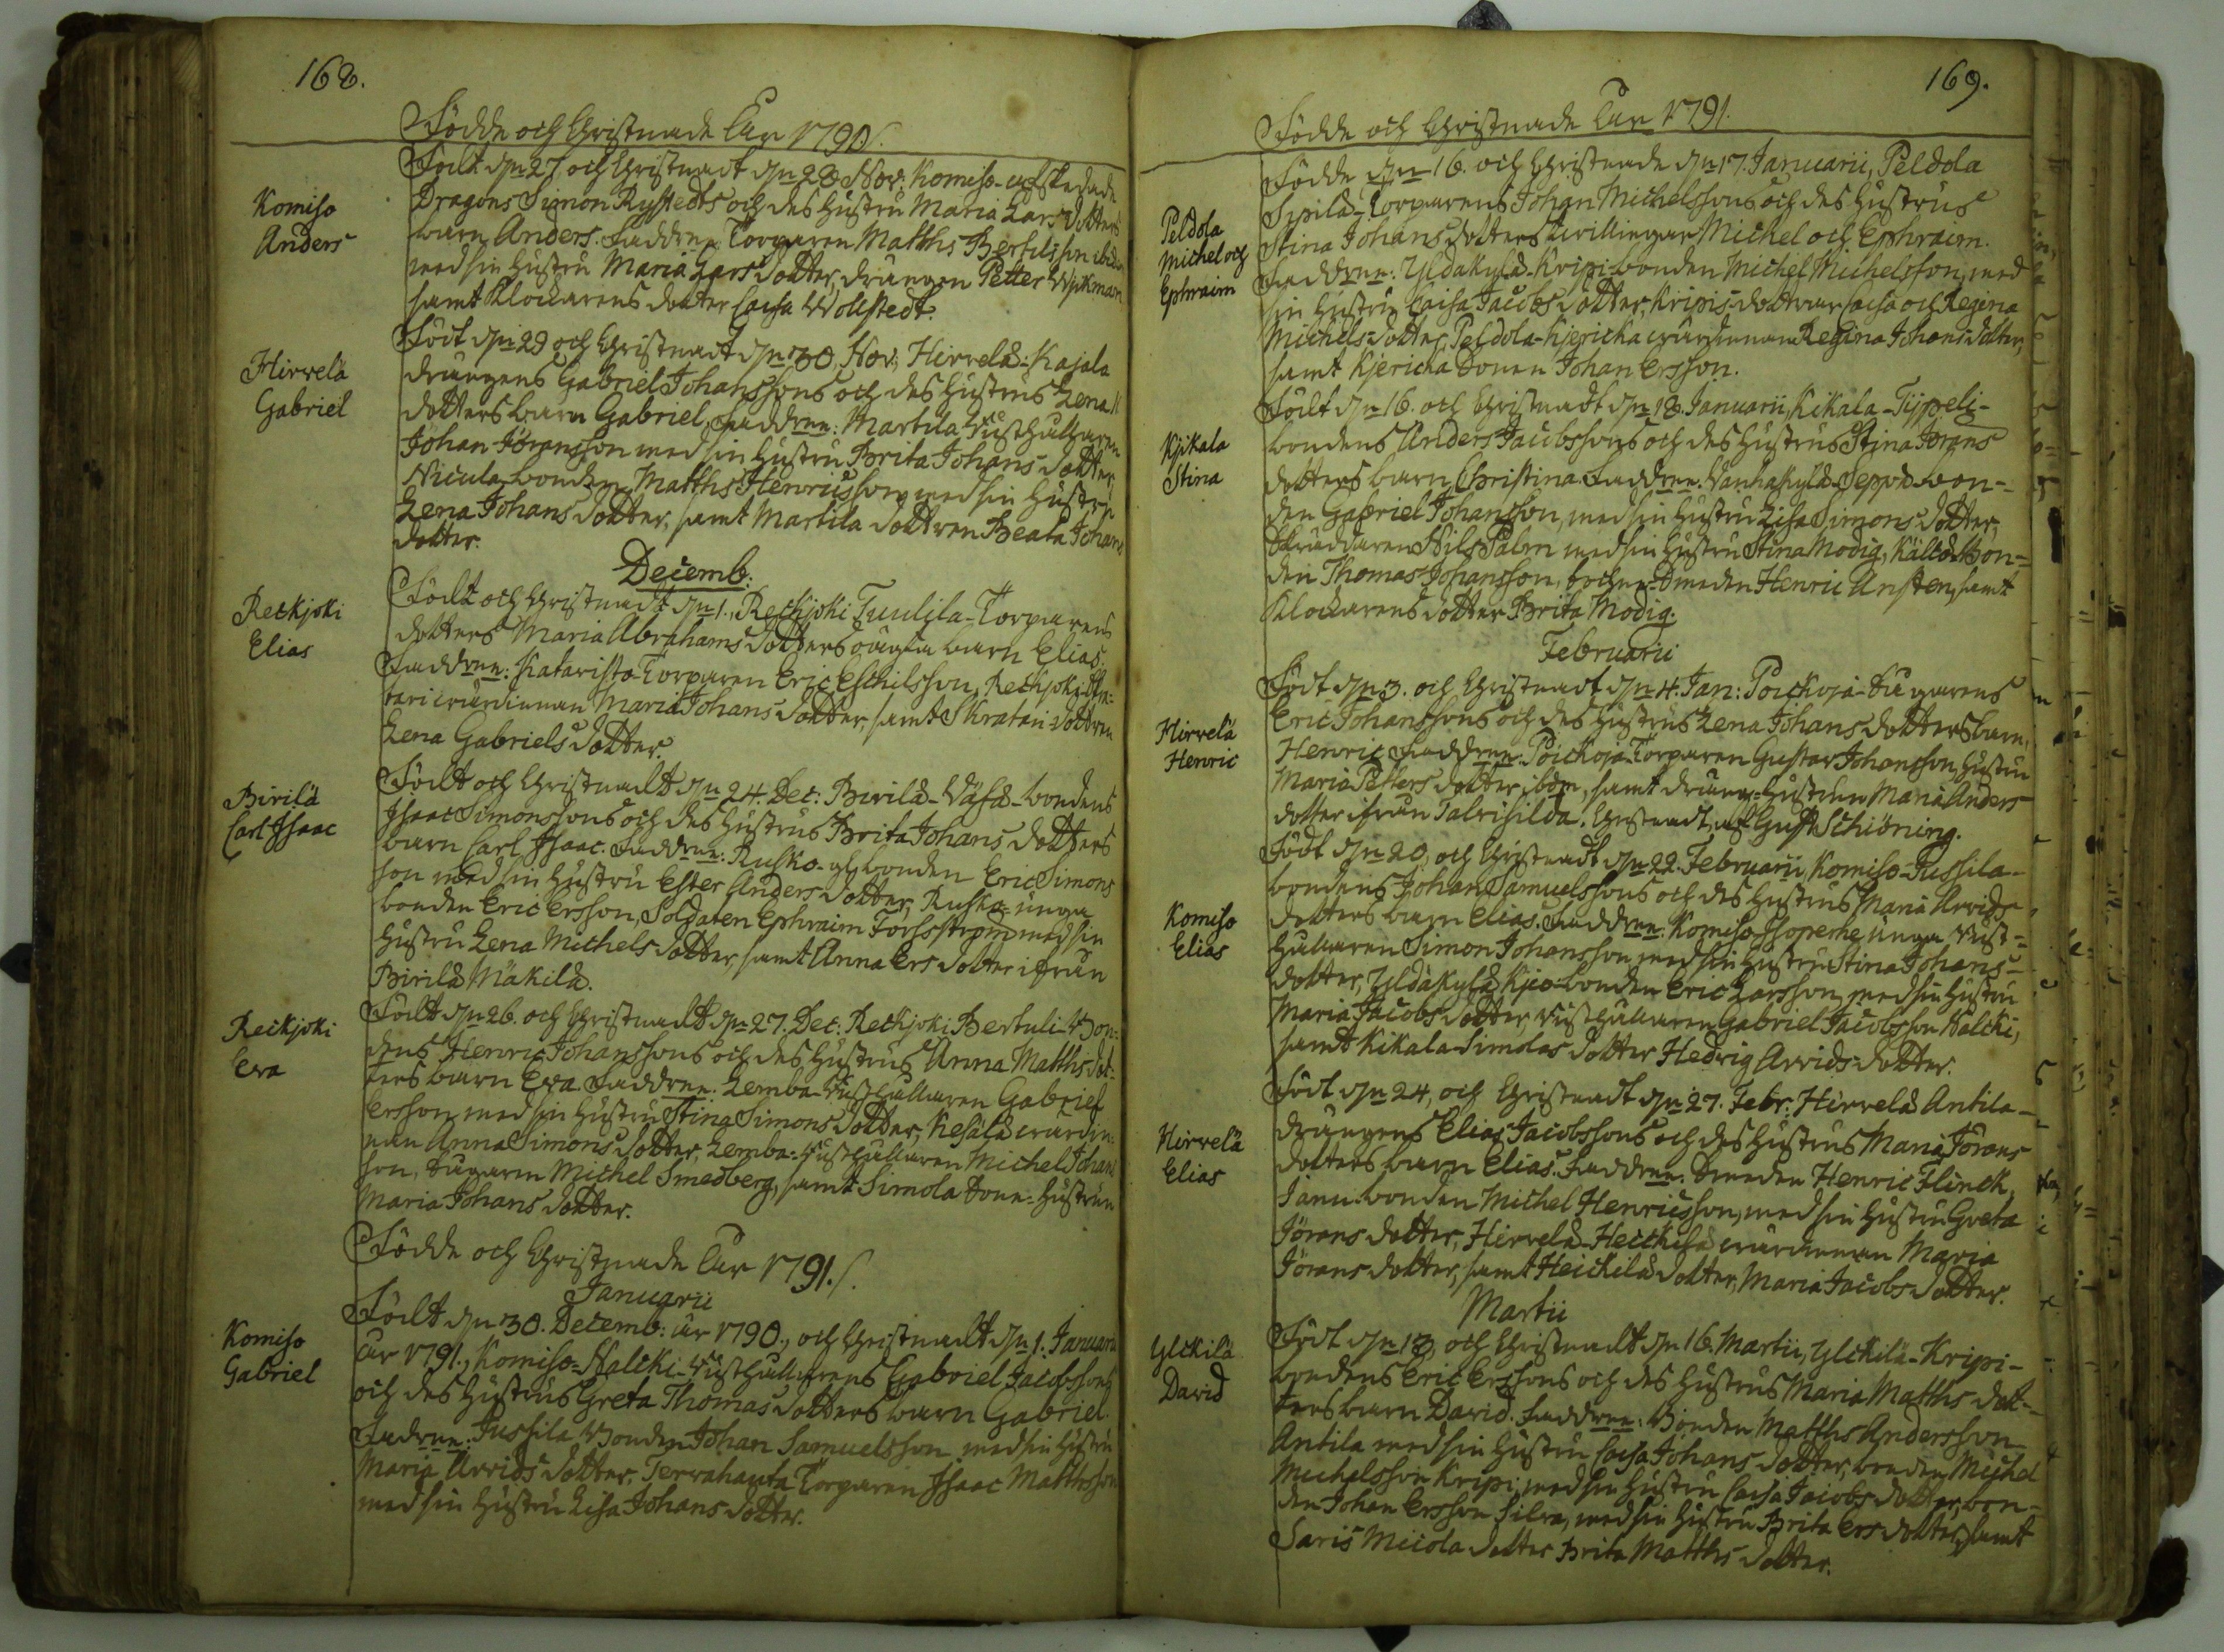 168.
Födde och Christnade Åar 1790.
Komiso
Anders
Födt d. 27 och Christnadt d. 28 Nov: Komiso-afskedade
Dragons Simon Rystedts och des Hustru Maria Lars dotters
barn Anders. Faddrne: Torparen Matths Bertilsson ibidm
med sin Hustru Maria Lars dotter, drängen Petter
samt Klockarens dotter Caisa Wollstedt.
Hirvelä
Gabriel
Födt d. 29 och Christnadt d. 30 Nov: Hirvelä-Kajala
drängens Gabriel Johanssons och des Hustrus Lena
dotters barn Gabriel. Faddrne: Martila Rusthållaren
Johan Jöransson med sin Hustru Brita Johans dotter,
Nicula bonden Matths Henricsson med sin Hustru
Lena Johans dotter, samt Martila dottren Beata Johans
dotter.
Decemb:
Reckjoki
Elias
Födt och Christnadt d. 1., Reckjoki Tuulila-Torparens
dotters Maria Abrahams dotters oägta barn Elias.
Faddrne: Kataristo-Torparen Eric Eschilsson, Reckjoki
värdinnan Maria Johans dotter, samt Skratari dottren
Lena Gabriels dotter.
Birilä
Carl Isaac
Födt och Christnadt d. 24. Dec: Birilä-Wäfä-bondens
Isaac Simonssons och des Hustrus Brita Johans dotters
barn Carl Isaac. Faddrne: Rusko- bonden Eric Simons
son med sin Hustru Ester Anders dotter, Rusko- unga
bonden Eric Ersson, Soldaten Ephraim Forsström med sin
Hustru Lena Michels dotter, samt Anna Ers dotter ifrån
Birilä Mäkilä.
Reckjoki
Eva
Födt d. 26. och Christnadt d. 27. Dec: Reckjoki Bertuli-Bon-
dens Henric Johanssons och des Hustrus Anna Matths dot-
ters barn Eva. Faddrne: Lemba-Rusthållaren Gabriel
Ersson med sin Hustru Stina Simons dotter, Kesälä värdin-
nan Anna Simons dotter, Lemba-Rusthållaren Michel Johans
son, Michel Smedberg, samt Simola Sone-Hustrun
Maria Johans dotter.
Födde och Christnade Åar 1791.
Januarii
Komiso
Gabriel
Födt d. 30. Decemb: år 1790., och Christnadt d. 1. Januarii
år 1791., Komiso-Nalcki-Rusthållarens Gabriel Jacobssons
och des Hustrus Greta Thomas dotters barn Gabriel.
Fadrne: Jussila Bonden Johan Samuelsson med sin Hustru
Maria Arvids dotter, Terrahauta Torparen Isaac Matthsson
med sin Hustru Lisa Johans dotter.
169.
Födde och Christnade Åar 1791.
Peldola
Michel och
Ephraim
Födde d. 16. och Christnade d. 17. Januarii, Peldola
Sipilä-Torparens Johan Michelssons och des Hustrus
Stina Johans dotters tvillingar Michel och Ephraim.
Faddrne: Yldäkylä-Kripi-bonden Michel Michelsson, med
sin Hustru Caisa Jacobs dotter, Kripis-döttrar Caisa och Regina
Michels-dotter, Peldola-Kjericka värdinnan Regina Johans dotter,
samt Kjericka Sonen Johan Ersson.
Kjikala
Stina
Födt d. 16. och Christnadt d. 18. Januarii, Kikala-Tijpeli-
bondens Anders Jacobssons och des Hustrus Stina Jörans
dotters barn Christina. Faddrne: Vanhakylä-Seppä-bon-
den Gabriel Johansson, med sin Hustru Lisa Simons dotter,
Skräddaren Nils Palm med sin Hustru Stina Modig, Källdä Bon-
den Thomas Johansson, Sockne-Smeden Henric Ansten, samt
Klockarens dotter Brita Modig.
Februarii
Hirvelä
Henric
Födt d. 3. och Christnadt d. 4. Jan: Poickoja-
Eric Johanssons och des Hustrus Lena Johans dotters barn,
Henric. Faddrne: Poickoja-Torparen Gustav Johansson, Hustru
Maria Petters dotter ibdm, samt drängs-Hustrun Maria Anders
dotter ifrån Talvisilda. Christnadt, af Gust. Schiöning.
Komiso
Elias
Födt d. 20, och Christnadt d. 22. Februarii, Komiso-Jussila-
bondens Johan Samuelssons och des Hustrus Maria Arvids-
dotters barn Elias. Faddrne: Komiso- unga Rust-
hållaren Simon Johansson med sin Hustru Stina Johans-
dotter, Yldäkylä Kjeo-bonden Eric Larsson, med sin Hustru
Maria Jacobs dotter, Rusthållaren Gabriel Jacobsson Nalcki,
samt Kikala-Simolas dotter Hedvig Arvids-dotter.
Hirvelä
Elias
Födt d. 24, och Christnadt d. 27. Febr: Hirvelä Antila-
drängens Elias Jacobssons och des Hustrus Maria Jörans
dotters barn Elias. Faddrne: Smeden Henric Flinck,
Jänni-bonden Michel Henricsson, med sin Hustru Greta
Jörans dotter, Hirvelä-Heickilä värdinnan Maria
Jörans dotter, samt Heickilä dotter, Maria Jacobs dotter.
Martii
Ylckilä
David
Födt d. 13, och Christnadt d. 16. Martii, Ylckilä-Kripi-
bondens Eric Erssons och des Hustrus Maria Matths dot-
ters barn David. Faddrne: Bonden Matths Andersson
Antila med sin Hustru Caisa Johans dotter, bonden Michel
Michelsson Kripi, med sin Hustru Caisa Jacobs dotter, bon-
den Johan Ersson Silva, med sin Hustru Brita Ers dotter, samt
Saris Miicola dotter Brita Matths dotter.